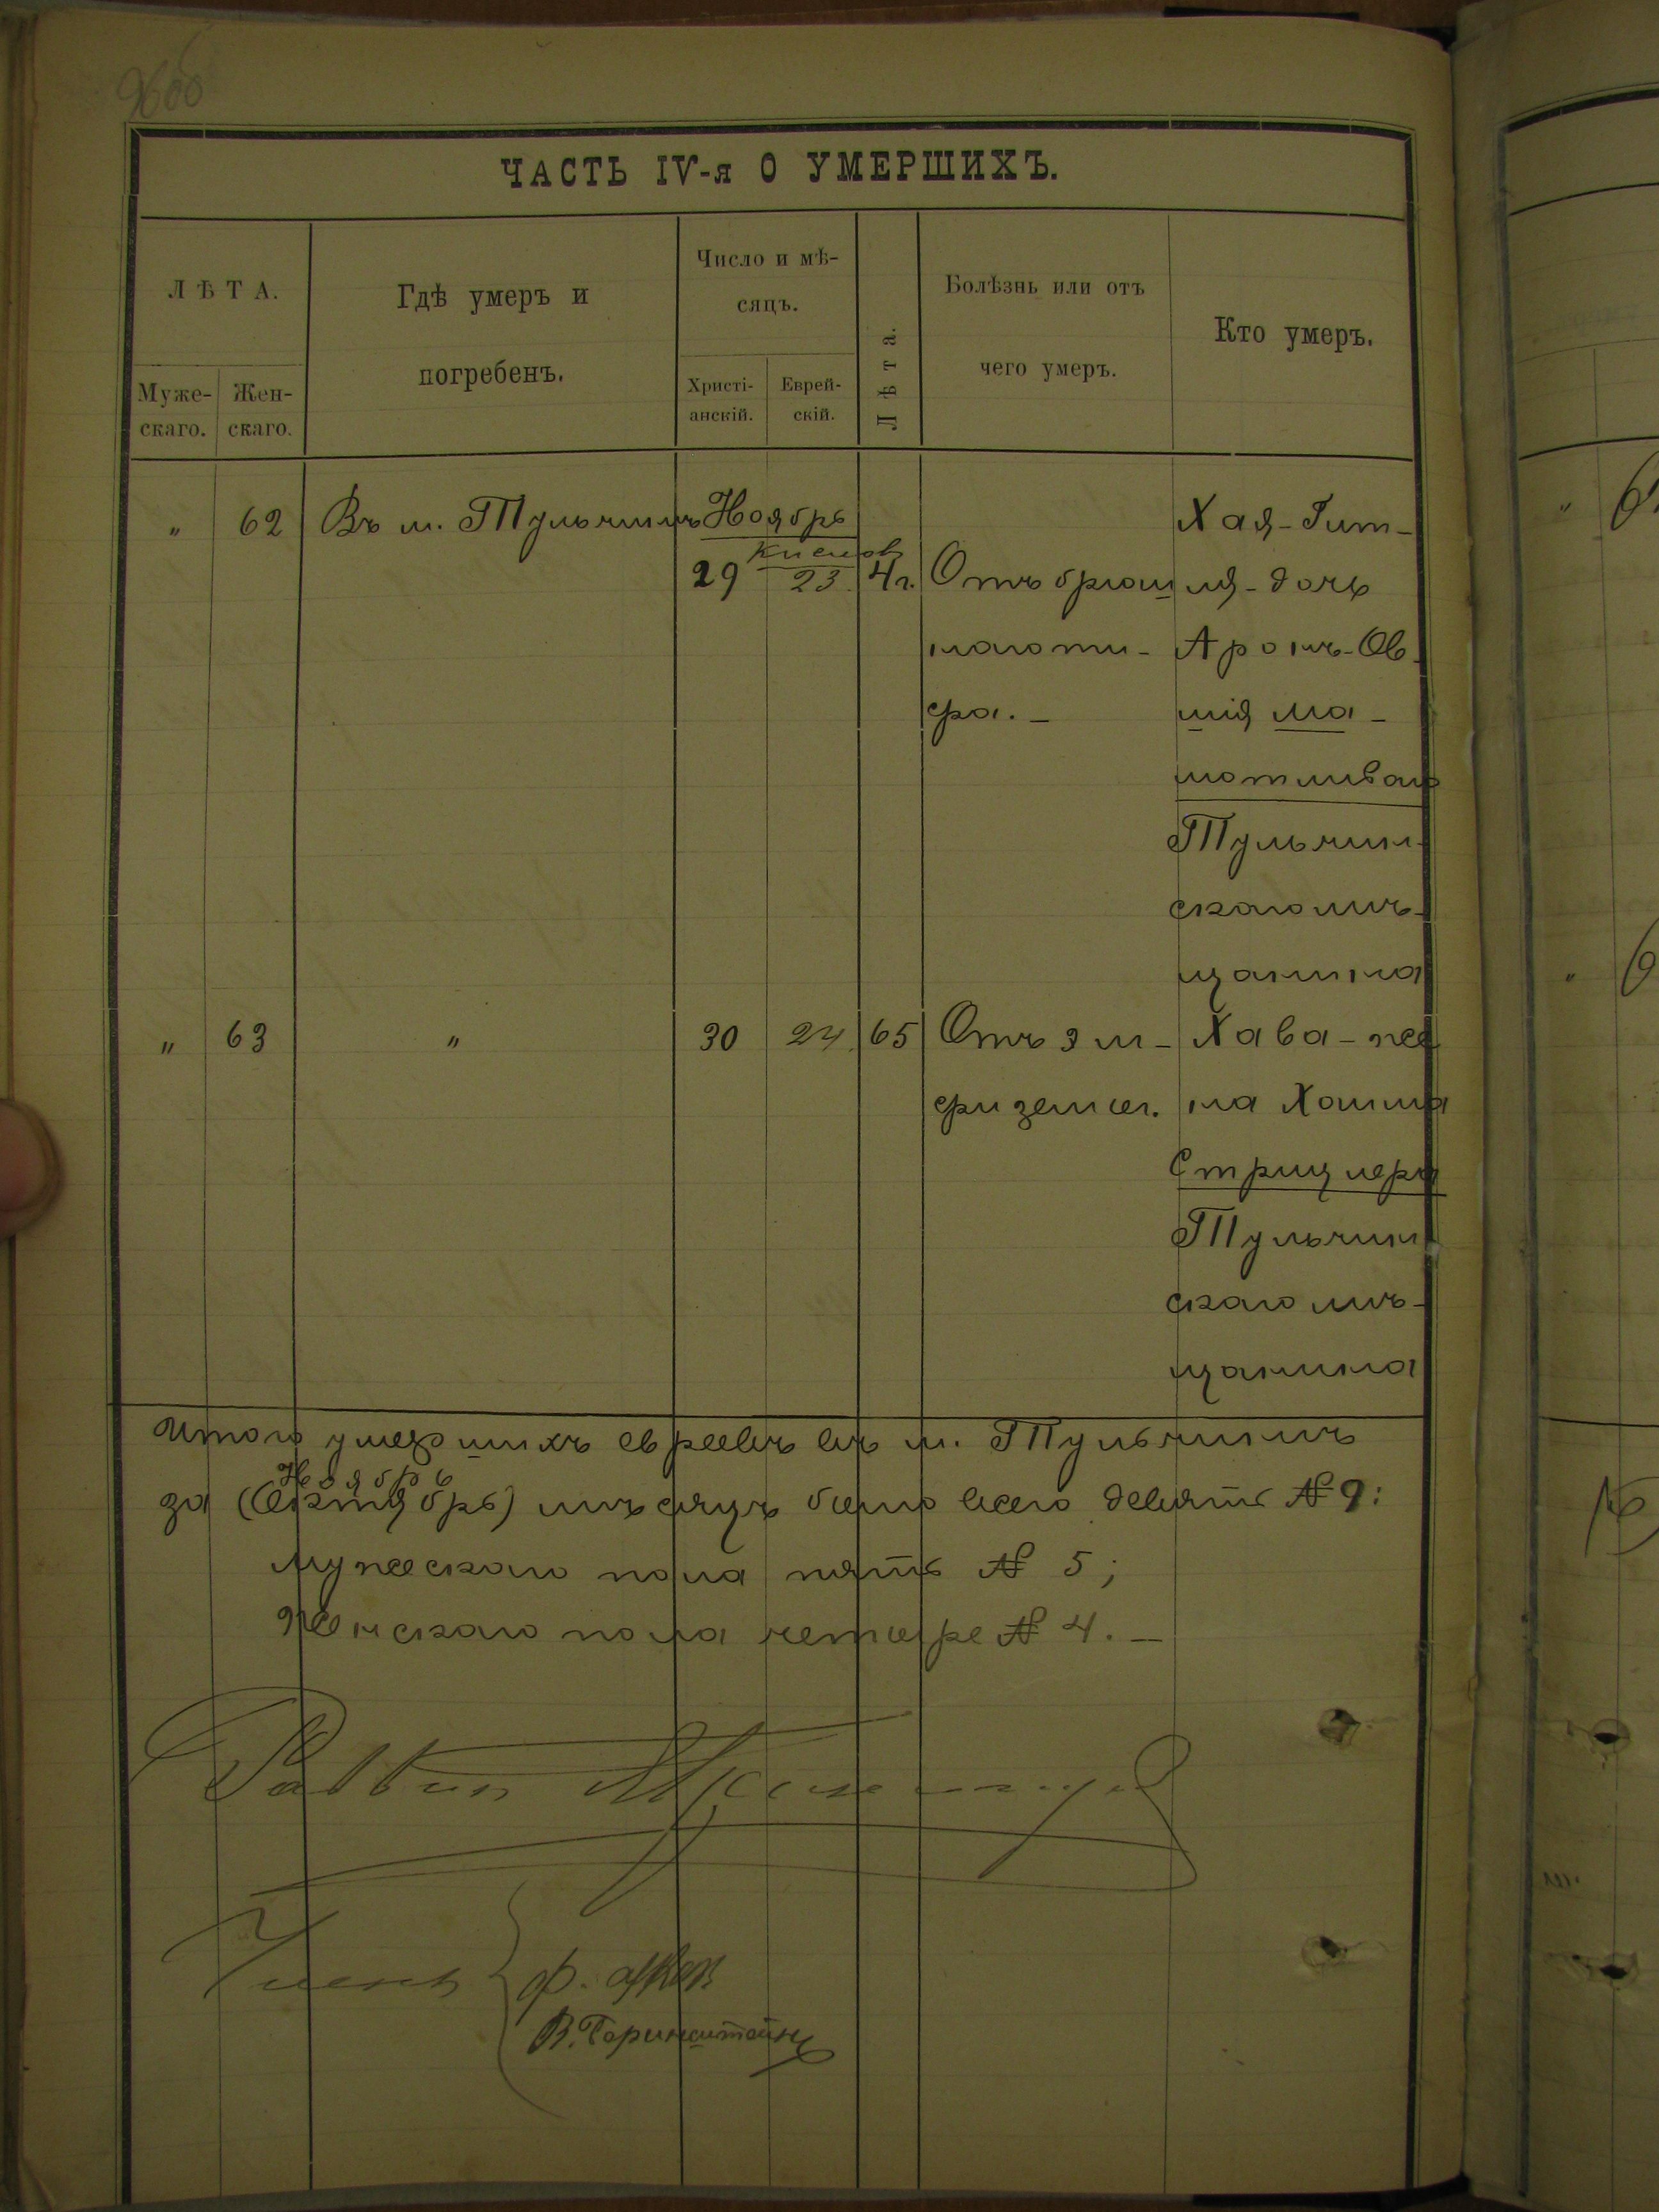 ЧАСТЬ IV-я О УМЕРШИХЪ.
ЛѢТА.
Муже-
скаго.
Жен-
скаго.
Гдѣ умеръ и
погребенъ.
Число и мѣ-
сяцъ.
Христі-
анскій.
Еврей-
скій.
Лѣта.
Болѣзнь или отъ
чего умеръ.
Кто умеръ.
" 62 Въ м. Тульчинѣ Ноябрь Хая-Гит-
Кислевъ
29 23 4 г. Отъ брюш ля-дочь
наго ти- Аронъ-Ов
фа. - шія Ма-
мотливаго
Тульчин-
скаго мѣ-
щанина
" 63 " 30 24 65 Отъ эм- Хава-же
физемы. на Хаима
Стрицлера
Тульчин
скаго мѣ-
щанина
Итого умершихъ евреевъ въ м. Тульчинѣ
Ноябрь
за (Октябрь) мѣсяцъ было всего девять № 9:
Мужескаго пола пять № 5;
Женскаго пола четыре № 4. -
Раввин
Члены
Ф.
В. Горинштейнъ